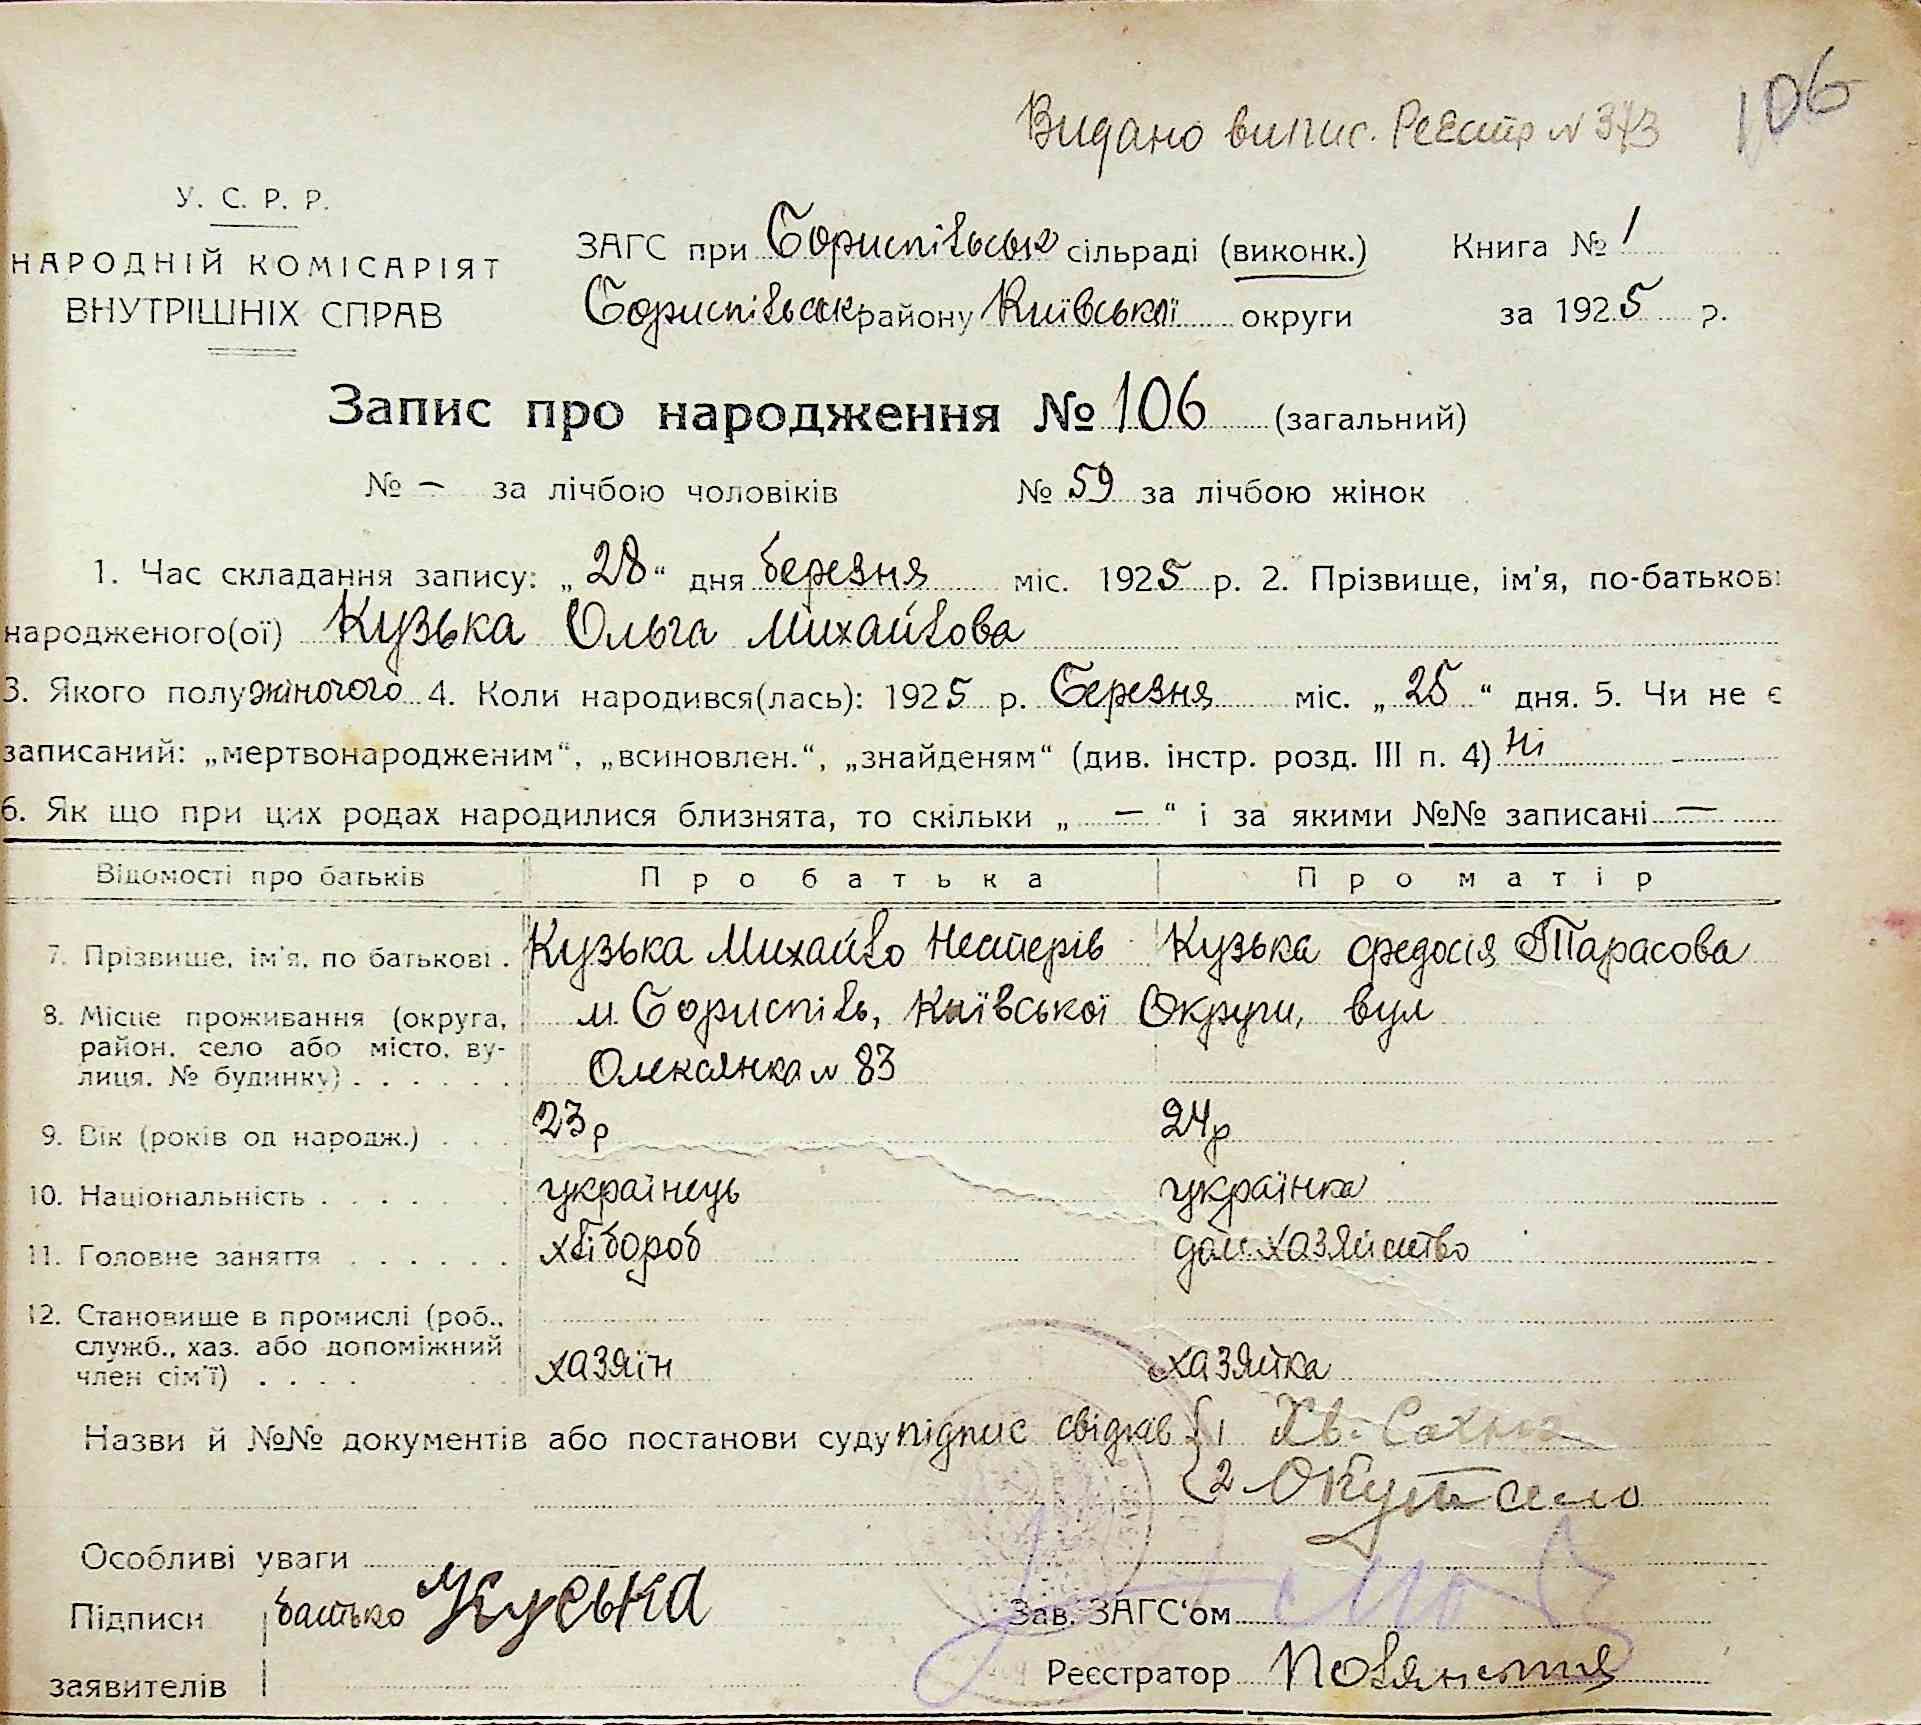 106
Видано випис. Реєстр N 373
У. С. Р. Р.
НАРОДНІЙ КОМІСАРІЯТ
ВНУТРІШНІХ СПРАВ
ЗАГС при Бориспільськ сільраді (виконк.)
Бориспільськ району Київської округи
Книга № 1
за 1925 р.
Запис про народження № 106 (загальний)
№ — за лічбою чоловіків № 59 за лічбою жінок
1. Час складання запису: „28“ дня березня міс. 1925 р. 2. Прізвище, ім'я, по-батькові
народженого(ої) Кузька Ольга Михайлова
3. Якого полу жіночого 4. Коли народився(лась): 1925 р. Березня міс. „25“ дня. 5. Чи не є
записаний: „мертвонародженим“, „всиновлен.“, „знайденям“ (див. інстр. розд. III п. 4) Ні
6. Як що при цих родах народилися близнята, то скільки „—“ і за якими №№ записані —
Відомості про батьків Про батька Про матір
7. Прізвище, ім'я, по батькові . Кузька Михайло Нестерів Кузька Федосія Тарасова
8. Місце проживання (округа, м. Бориспіль, Київської Округи, вул
район, село або місто, ву-
лиця, № будинку) . . . . . . Олексянка N 83
9. Вік (років од народж.) . . . 23 р 24 р
10. Національність . . . . . . українець українка
11. Головне заняття . . . . . . хлібороб дом. хазяйство
12. Становище в промислі (роб.,
служб., хаз. або допоміжний
член сім'ї) . . . . хазяїн хазяйка
Назви й №№ документів або постанови суду підпис свідків { 1 Хв.
2
Особливі уваги
Підписи батько Куська
Зав. ЗАГС‘ом
заявителів
Реєстратор